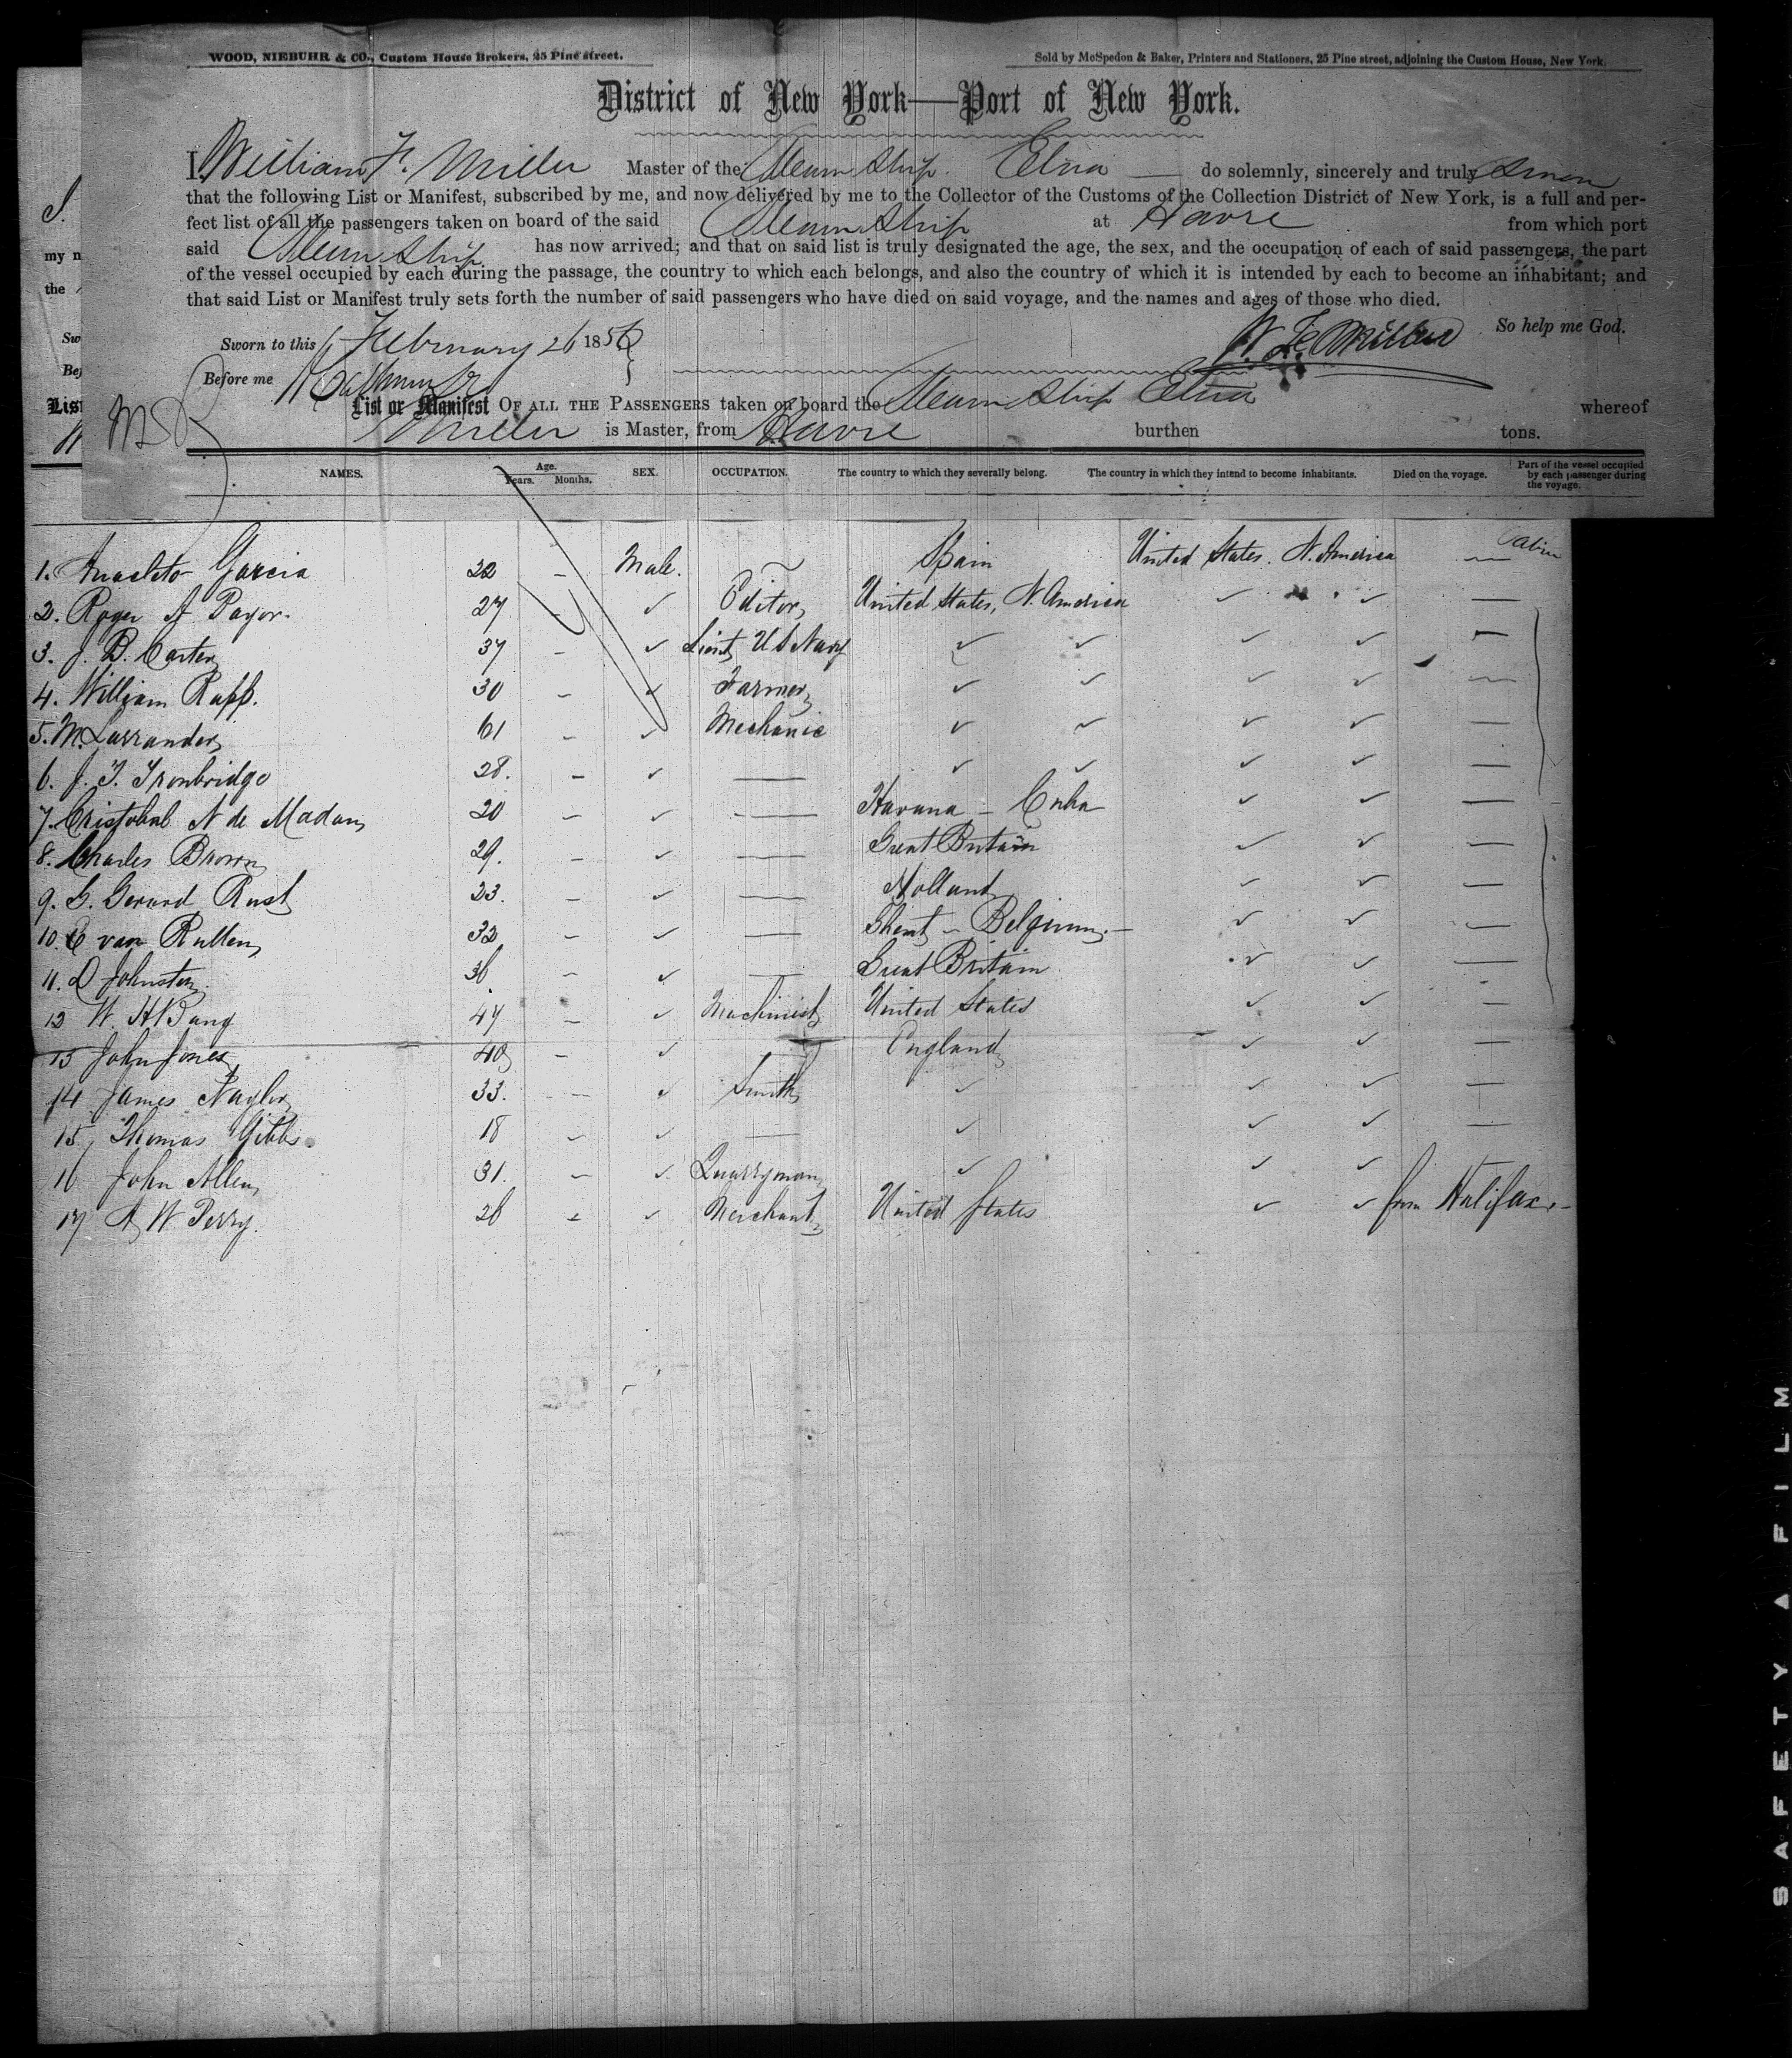 WOOD, NIEBUHR & CO., Custom House Brokers, 25 Pine street.
Sold by McSpedon & Baker, Printers and Stationers, 25 Pine street, adjoining the Custom House, New York.
District of New York—Port of New York.
I, William F. Miller Master of the Steam Ship Etna do solemnly, sincerely and truly swear
that the following List or Manifest, subscribed by me, and now delivered by me to the Collector of the Customs of the Collection District of New York, is a full and per-
fect list of all the passengers taken on board of the said Steam Ship at Havre from which port
said Steam Ship has now arrived; and that on said list is truly designated the age, the sex, and the occupation of each of said passengers, the part
of the vessel occupied by each during the passage, the country to which each belongs, and also the country of which it is intended by each to become an inhabitant; and
that said List or Manifest truly sets forth the number of said passengers who have died on said voyage, and the names and ages of those who died.
So help me God.
Sworn to this February 26 1856
Before me
List or Manifest OF ALL THE PASSENGERS taken on board the Steam Ship Etna whereof
Miller is Master, from Havre burthen tons.
NAMES. Age. Years. Months. SEX. OCCUPATION. The country to which they severally belong. The country in which they intend to become inhabitants. Died on the voyage. Part of the vessel occupied by each passenger during the voyage.
1. Anacleto Garcia 22 – Male. Spain United States. N. America — Cabin
2. Roger A Pryor. 27 – ✓ Editor United States, N. America ✓ ✓ —
3. J. D. Carter 37 – ✓ Lieut U S Navy ✓ ✓ ✓ ✓ —
4. William Rapp. 30 – ✓ Farmer ✓ ✓ ✓ ✓ —
5. M. 61 – ✓ Mechanic ✓ ✓ ✓ ✓ —
6. J. T. 28. – ✓ — ✓ ✓ ✓ ✓ —
7. Cristobal N de Madan 20 – ✓ — Havana – Cuba ✓ ✓ —
8. Charles Brown 29. – ✓ — Great Britain ✓ ✓ —
9. G. Gerard Rust 23. – ✓ — Holland ✓ ✓ —
10. C van Rullen 32 – ✓ — Ghent – Belgium. — ✓ ✓ —
11. D Johnston 36 – ✓ — Great Britain ✓ ✓ —
12 W. H Bang 47 – ✓ Machinist United States ✓ ✓ —
13 John Jones 40 – ✓ — England ✓ ✓ —
14 James Naylor 33. – ✓ Smith ✓ ✓ ✓ —
15, Thomas Gibbs. 18 – ✓ — ✓ ✓ ✓ —
16 John Allen 31. – ✓ Quarryman ✓ ✓ ✓ —
17 A W Perry. 26 – ✓ Merchant United States ✓ ✓ from Halifax. –
SAFETY A FILM